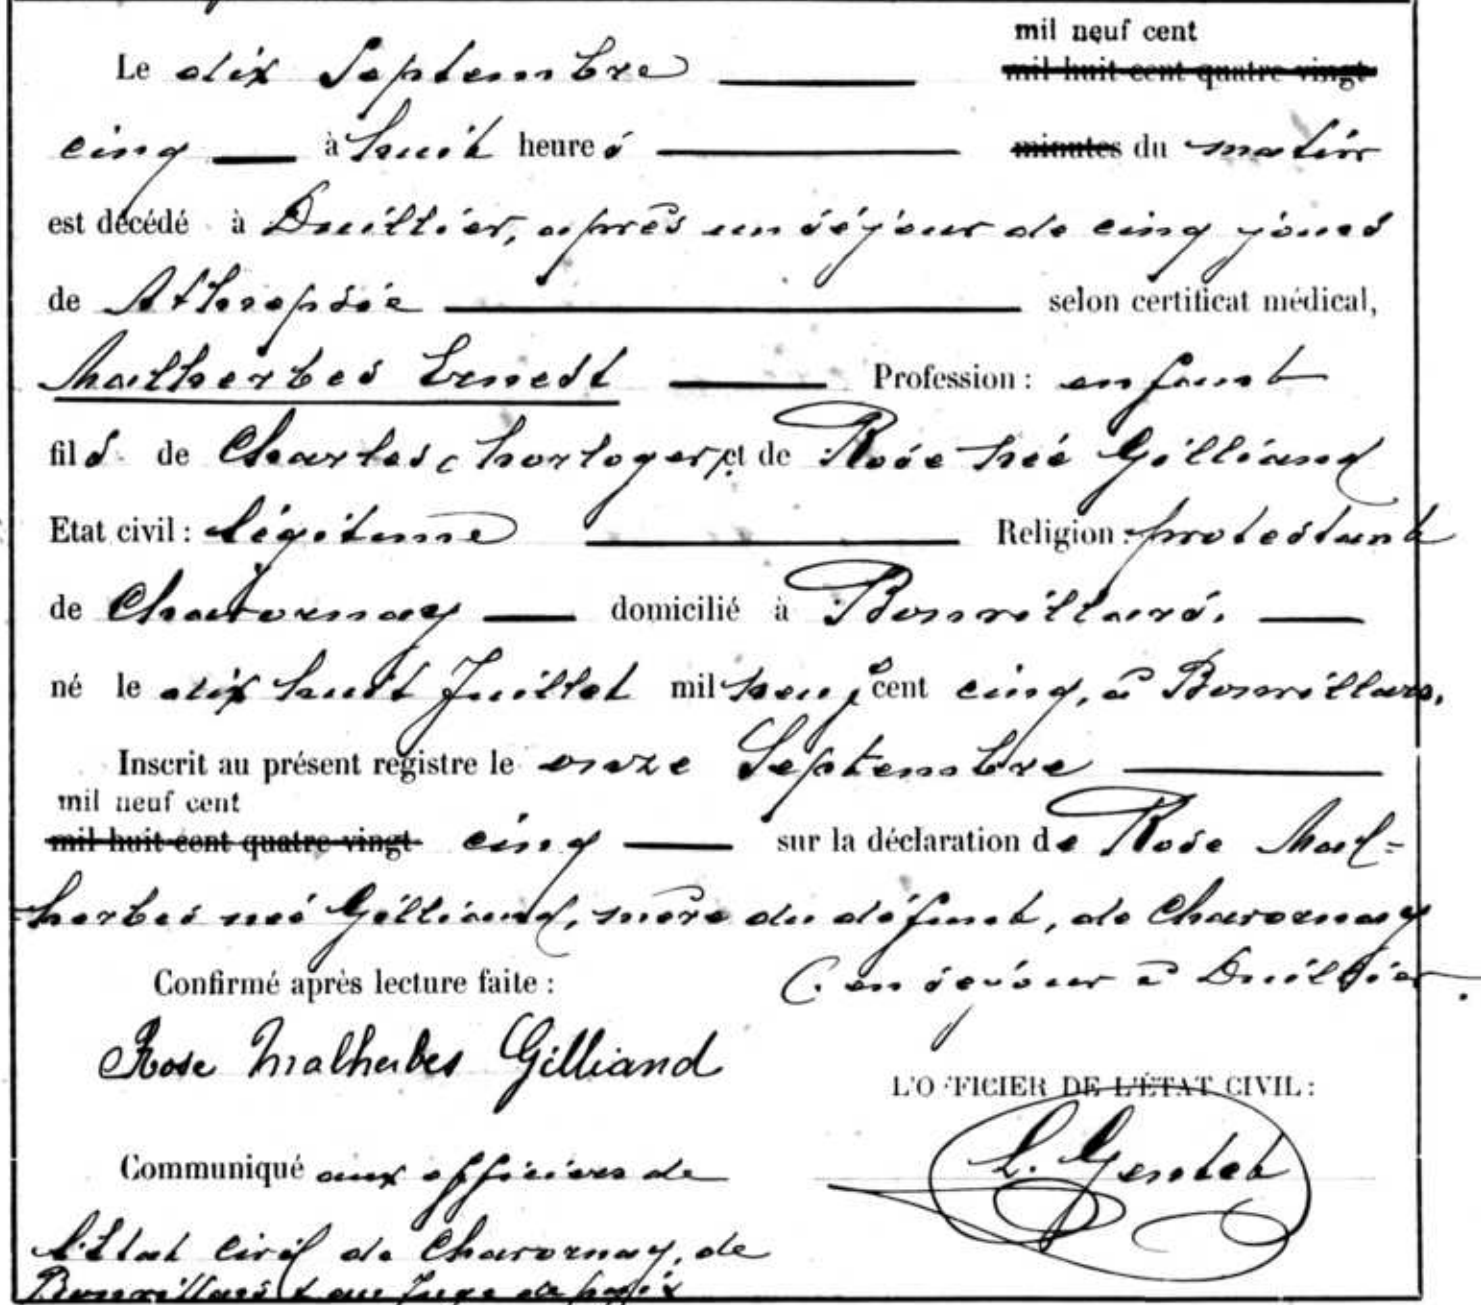 mil neuf cent
Le dix Septembre mil huit cent quatre vingt
cinq à huit heures minutes du matin
est décédé à Duillier, après un séjour de cinq jours
de Athrepsie selon certificat médical,
Malherbes Ernest Profession : enfant
fils de Charles, horloger, et de Rose née Gilliand
Etat civil : légitime Religion : protestant
de Chavornay domicilié à Bonvillars.
né le dix huit Juillet mil neuf cent cinq, à Bonvillars.
Inscrit au présent registre le onze Septembre
mil neuf cent
mil huit cent quatre vingt cinq sur la déclaration de Rose Mal=
=herbes née Gilliand, mère du défunt, de Chavornay
(. en séjour à Duillier.
Confirmé après lecture faite :
Rose Malherbes Gilliand
L'OFFICIER DE L'ÉTAT CIVIL :
L. Gentet
Communiqué aux officiers de
l'Etat Civil de Chavornay, de
Bonvillars & au Juge de paix